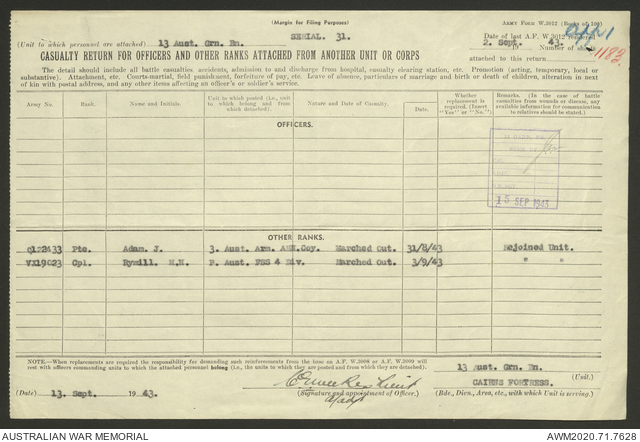 (Margin for Filing Purposes)
ARMY FORM W.3012 (Books of 100)
SERIAL 31.
13 Aust. Grn. Bn.
(Unit to which personnel are attached)
Date of last A.F. W.3012 rendered
2. Sept. 1943.
Number of sheets
attached to this return
1182
CASUALTY RETURN FOR OFFICERS AND OTHER RANKS ATTACHED FROM ANOTHER UNIT OR CORPS
The detail should include all battle casualties, accidents, admission to and discharge from hospital, casualty clearing station, etc. Promotion (acting, temporary, local or
substantive). Attachment, etc. Courts-martial, field punishment, forfeiture of pay, etc. Leave of absence, particulars of marriage and birth or death of children, alteration in next
of kin with postal address, and any other items affecting an officer's or soldier's service.
Army No. Rank. Name and Initials. Unit in which posted (i.e., unit to which they belong and from which detached). Nature and Date of Casualty. Date. Whether replacement is required. (Insert "Yes" or "No.") Remarks. (In the case of battle casualties from wounds or disease, any available information for communication to relatives should be stated.)
OFFICERS.
15 SEP 1943
OTHER RANKS.
Q122433 Pte. Adam. J. 3. Aust. Arm. AMN.Coy. Marched Out. 31/8/43 Rejoined Unit.
VX19023 Cpl. Rymill. M.N. P. Aust. FSS 4 Div. Marched Out. 3/9/43 " "
NOTE.—When replacements are required the responsibility for demanding such reinforcements from the base on A.F. W.3008 or A.F. W.3009 will
rest with officers commanding units to which the attached personnel belong (i.e., the units in which they are posted and from which they are detached).
13 Aust. Grn. Bn.
(Unit.)
(Date) 13. Sept. 1943.
Lieut
(Signature and appointment of Officer.)
CAIRNS FORTRESS.
(Bde., Divn., Area, etc., with which Unit is serving.)
AUSTRALIAN WAR MEMORIAL
AWM2020.71.7628